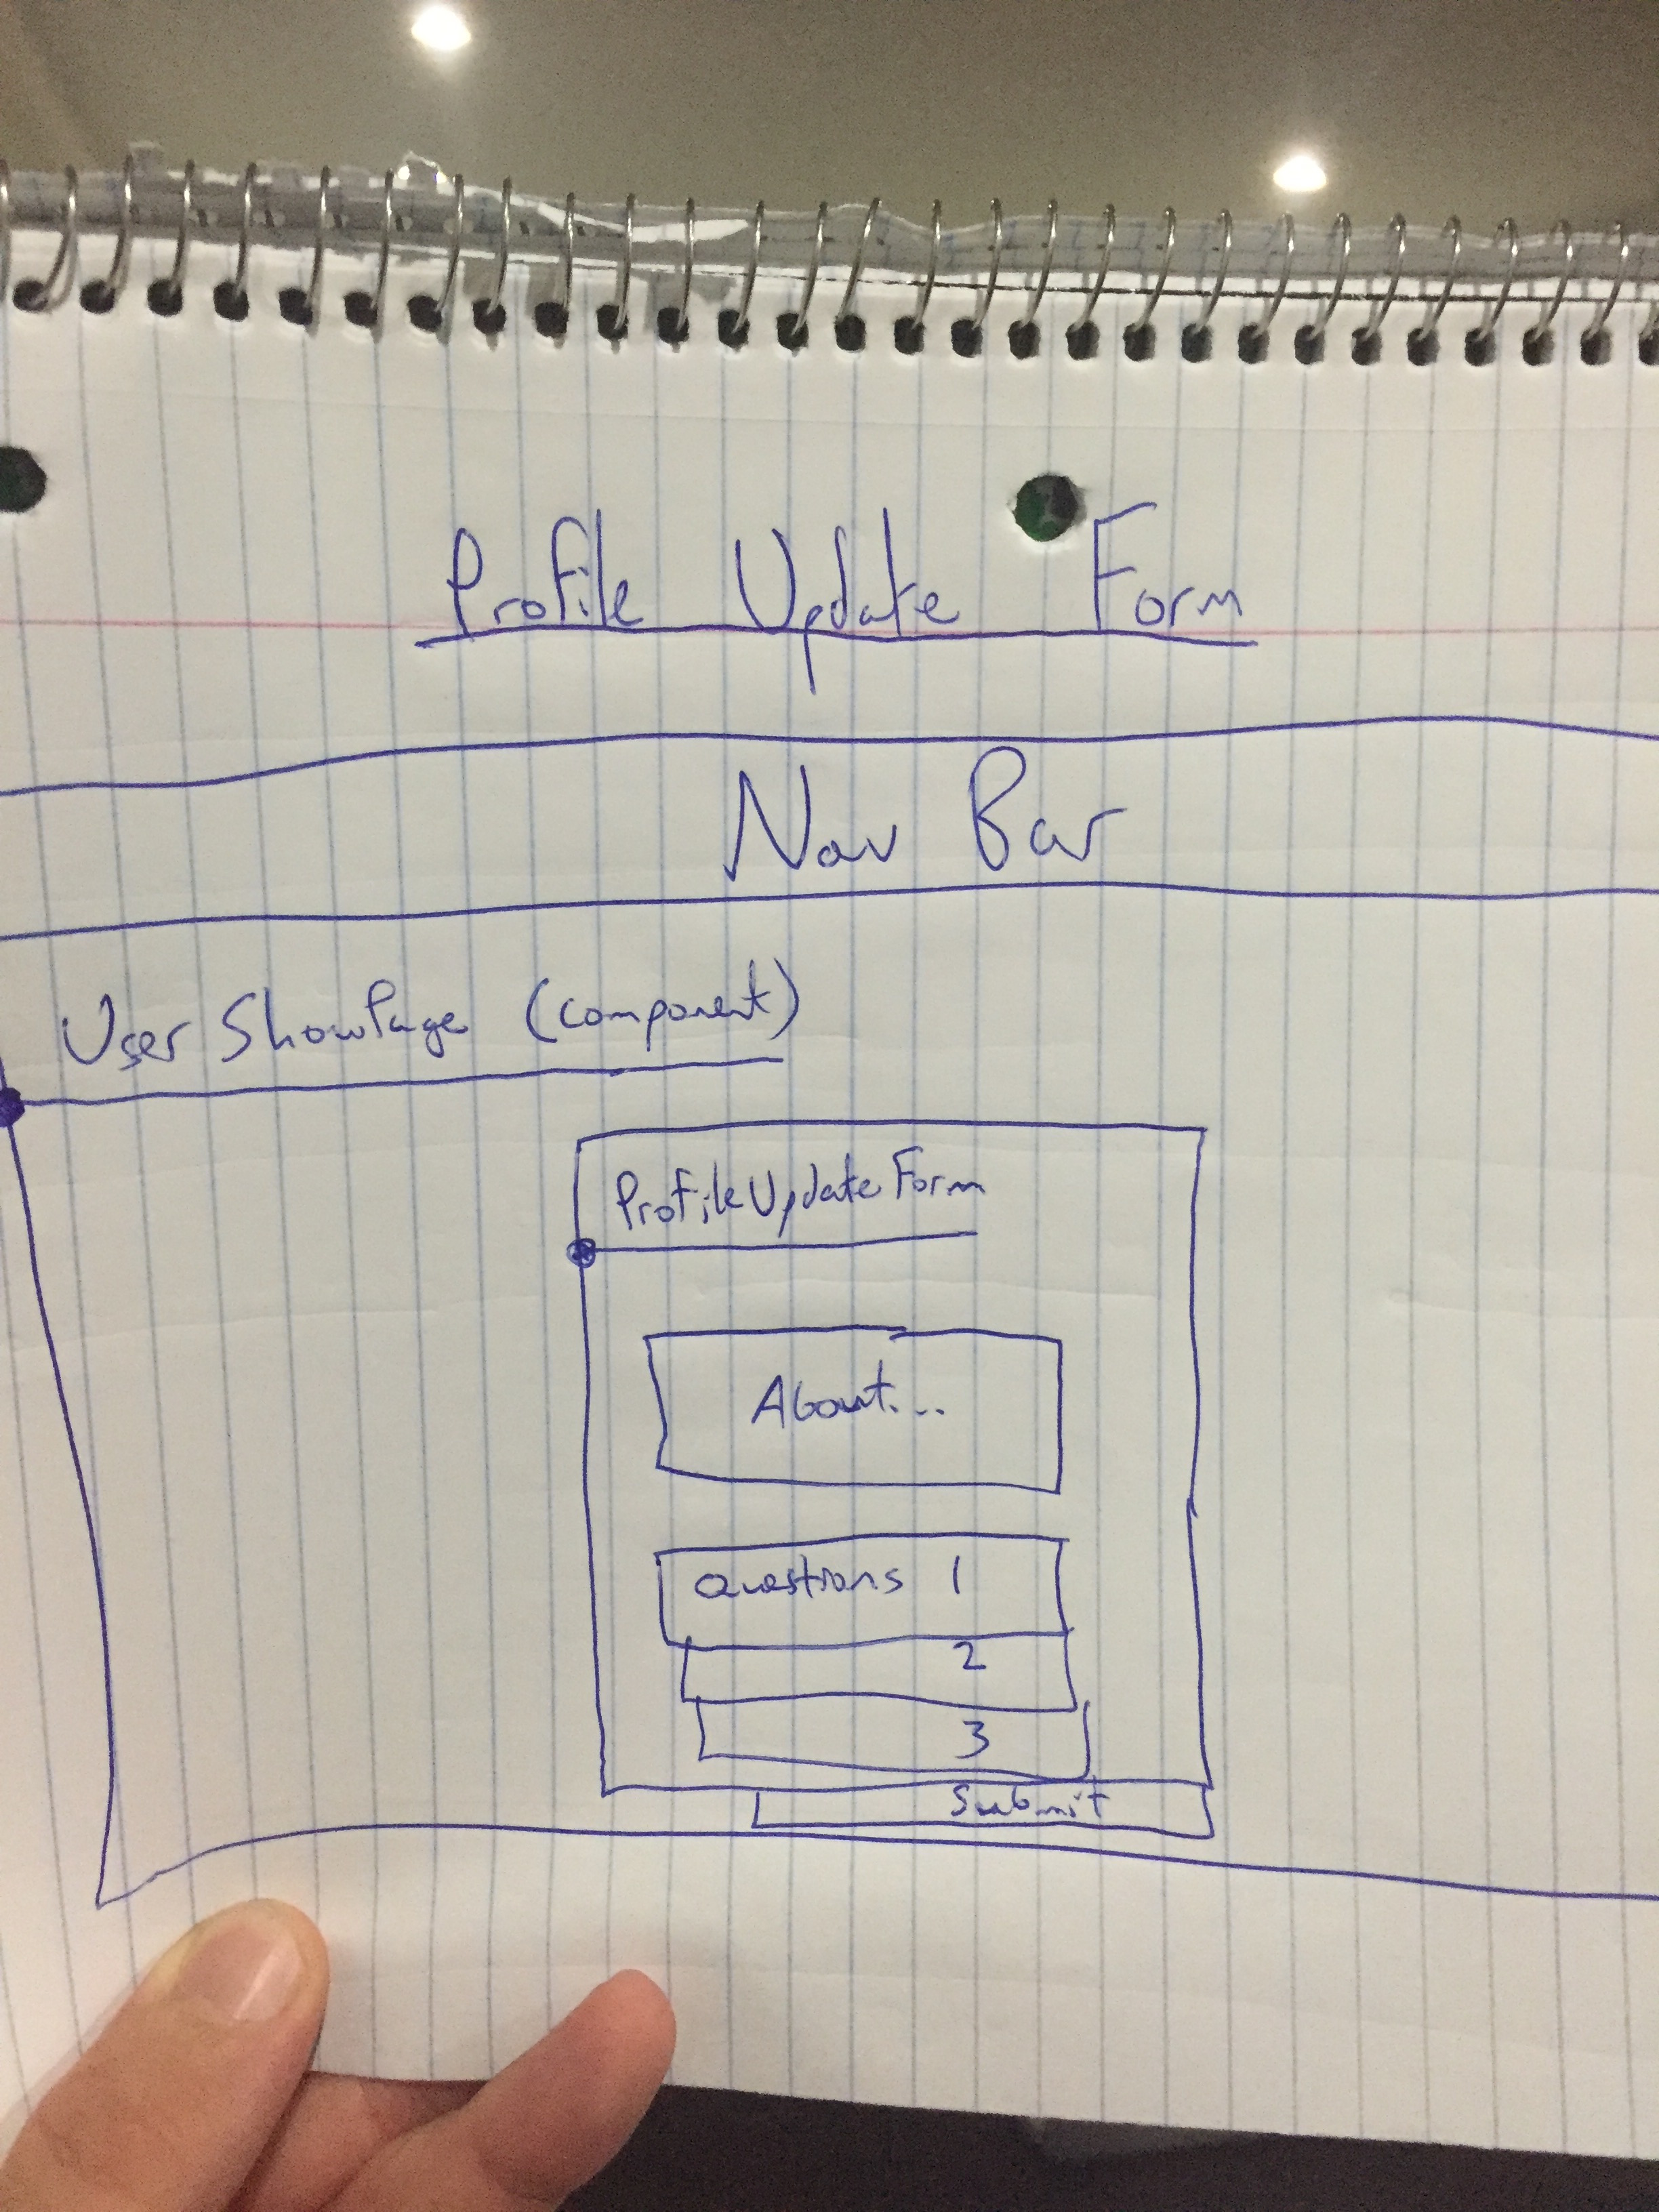 Profile Update Form
Nav Bar
User ShowPage (component)
ProfileUpdateForm
About...
questions 1
2
3
Submit